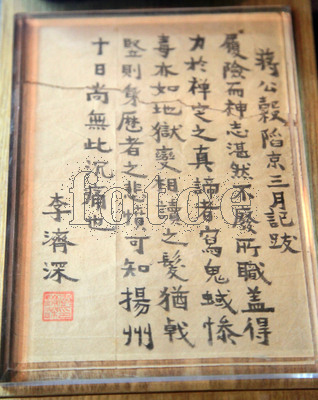 蔣公穀陷京三月記跋
履險而神志湛然不廢所職蓋得
力於禪定之真諦者寫鬼蜮慘
毒亦如地獄變相讀之髮猶戟
竪則身歷者之悲憤可知揚州
十日尚無此沉痛也
李濟深
fotoe